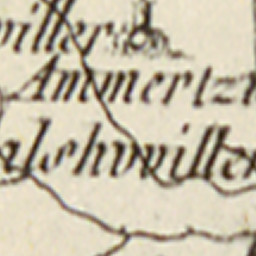 willer
Ammertz
alschwiller